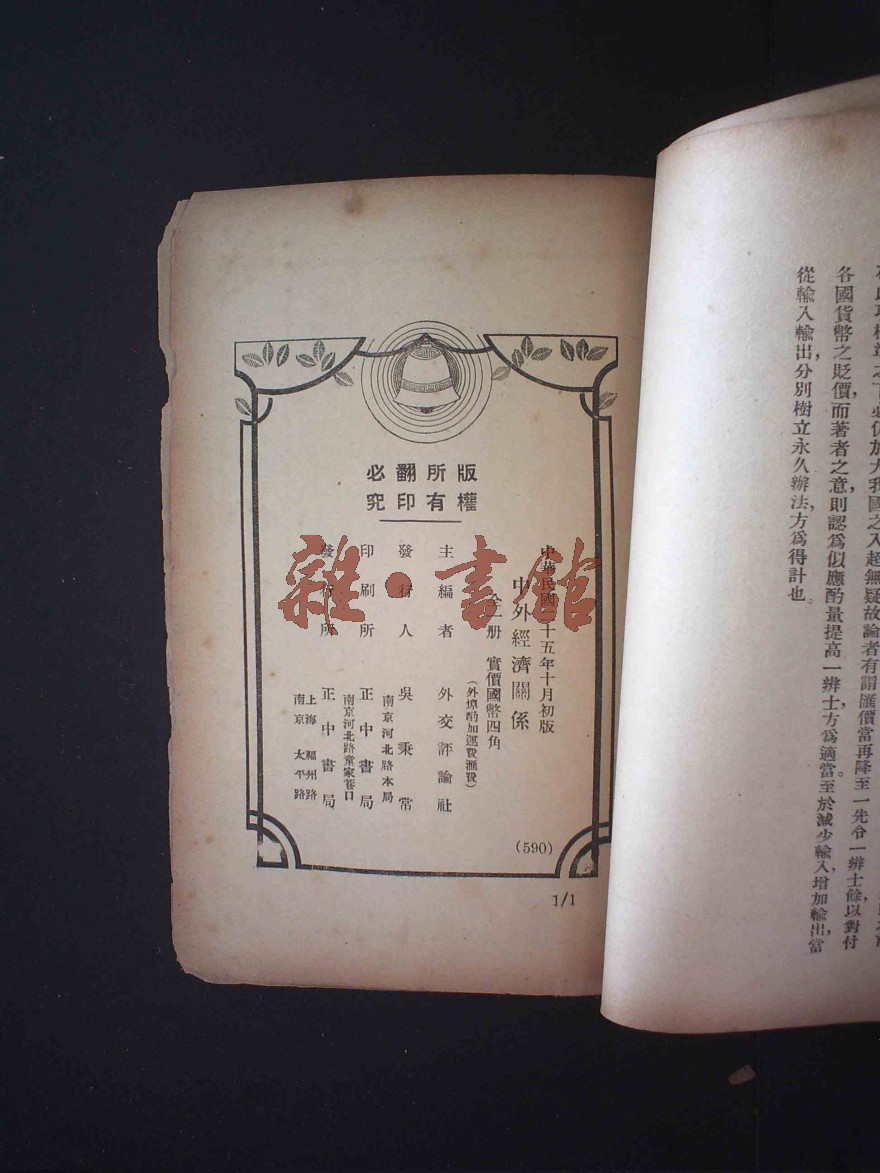 各國貨幣之貶價，而著者之意，則認爲似應酌量提高一辨士，方爲適當。至於減少輸入，增加輸出，當
從輸入輸出，分別樹立永久辦法，方爲得計也。
版權所有
翻印必究
中華民國二十五年十月初版
中外經濟關係
全一册 實價國幣四角
（外埠酌加運費滙費）
主編者 外交評論社
發行人 吳秉常
南京河北路本局
印刷所 正中書局
南京河北路童家巷口
發行所 正中書局
上海福州路
南京太平路
(590)
1/1
雜·書館